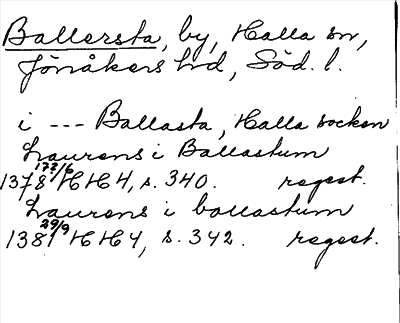 Ballersta, by, Halla sn,
Jönåkers hd, Söd. l.
i --- Ballasta, Halla socken
Laurens i Ballastum
1378 17?/6 HH 4, s. 340. regest.
Laurens i ballastum
1381 29/9 HH 4, s. 342. regest.